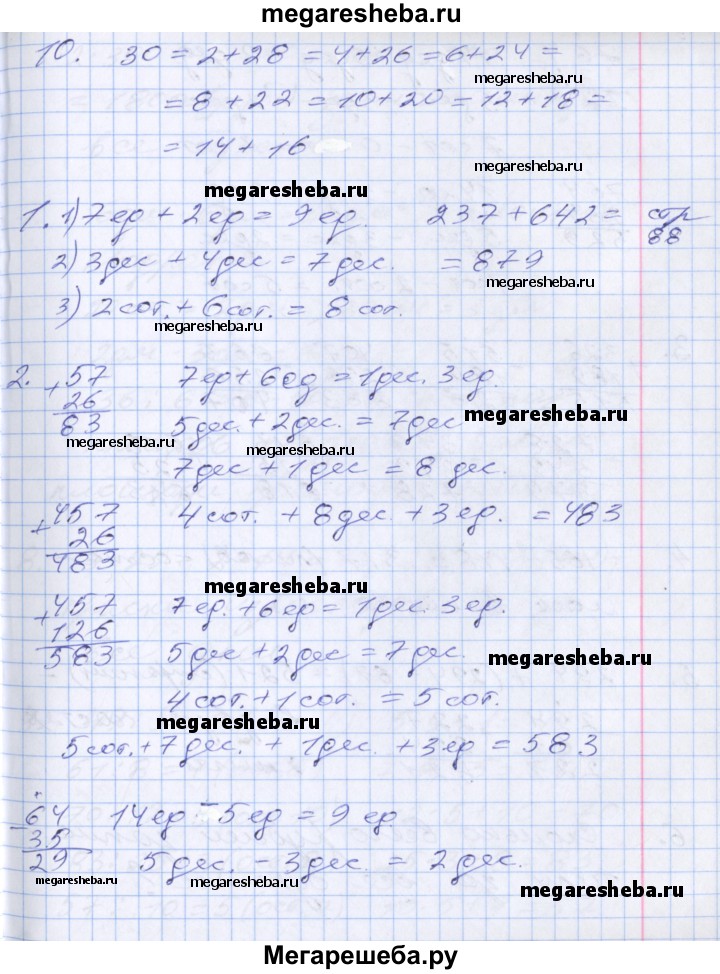 megaresheba.ru
10. 30 = 2+28 = 4+26 = 6+24 =
megaresheba.ru
= 8 + 22 = 10+20 = 12+18 =
= 14+16
megaresheba.ru
megaresheba.ru
1. 1) 7ед + 2ед = 9ед. 237+642 = стр 88
2) 3дес + 4дес = 7дес. = 879
3) 2сот. + 6сот. = 8сот.
megaresheba.ru
2. + 57 7ед + 6ед = 1дес. 3ед.
26
83 5дес. + 2дес. = 7дес
megaresheba.ru
megaresheba.ru megaresheba.ru
7дес + 1дес = 8 дес.
+ 457 4сот. + 8дес. + 3ед. = 483
26
483
megaresheba.ru
+ 457 7ед. + 6ед = 1дес. 3ед.
126
583 5дес + 2дес = 7дес.
megaresheba.ru
4сот. + 1сот. = 5сот.
megaresheba.ru
5сот. + 7дес. + 1дес. + 3ед = 583
- 64 14ед - 5ед = 9 ед
35
29 5дес. - 3дес. = 2дес.
megaresheba.ru megaresheba.ru megaresheba.ru
Мегарешеба.ру